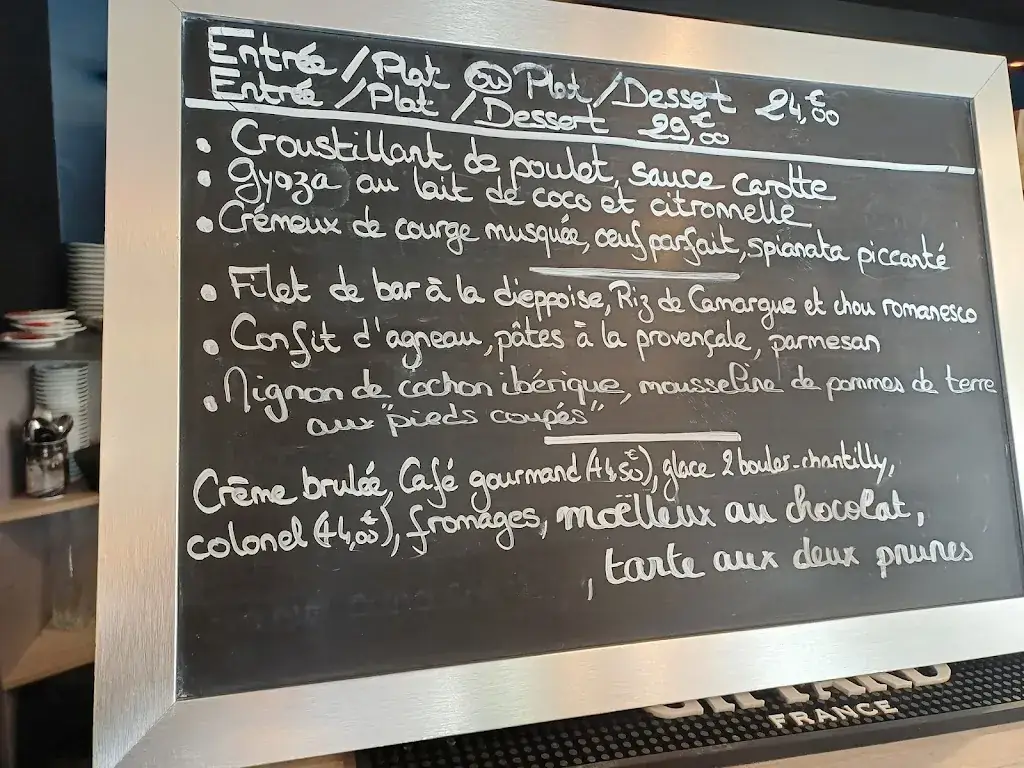 Entrée / Plat ou Plat / Dessert 24,€00
Entrée / Plat / Dessert 29,€00
• Croustillant de poulet, sauce carotte
• Gyoza au lait de coco et citronnelle
• Crémeux de courge musquée, œuf parfait, spianata piccanté
• Filet de bar à la dieppoise, Riz de Camargue et chou romanesco
• Confit d'agneau, pâtes à la provençale, parmesan
• Mignon de cochon ibérique, mousseline de pommes de terre
aux "pieds coupés"
Crème brulée, Café gourmand (+4,€50), glace 2 boules-chantilly,
colonel (+4,€00), fromages, moëlleux au chocolat,
, tarte aux deux prunes
FRANCE